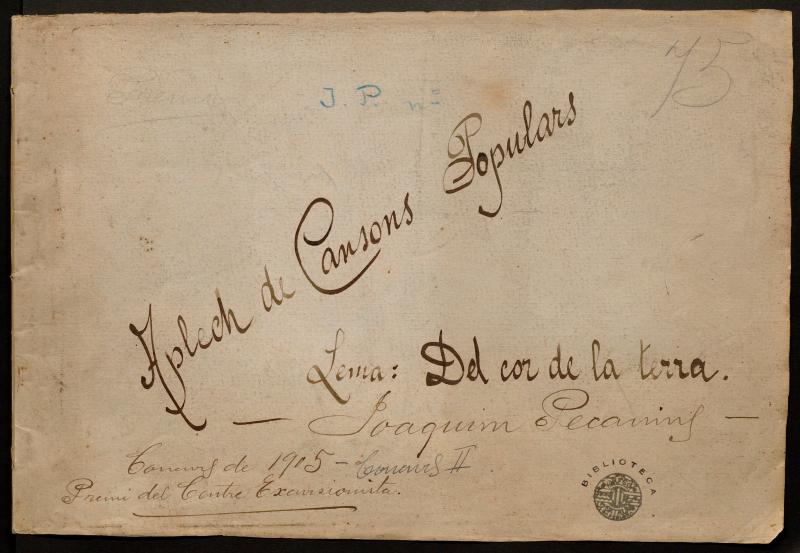 75
J. P. nº
Aplech de Cansons Populars
Lema: Del cor de la terra.
— Joaquim Pecanins —
Concurs de 1905 - Concurs II
Premi del Centre Excursionista.
BIBLIOTECA